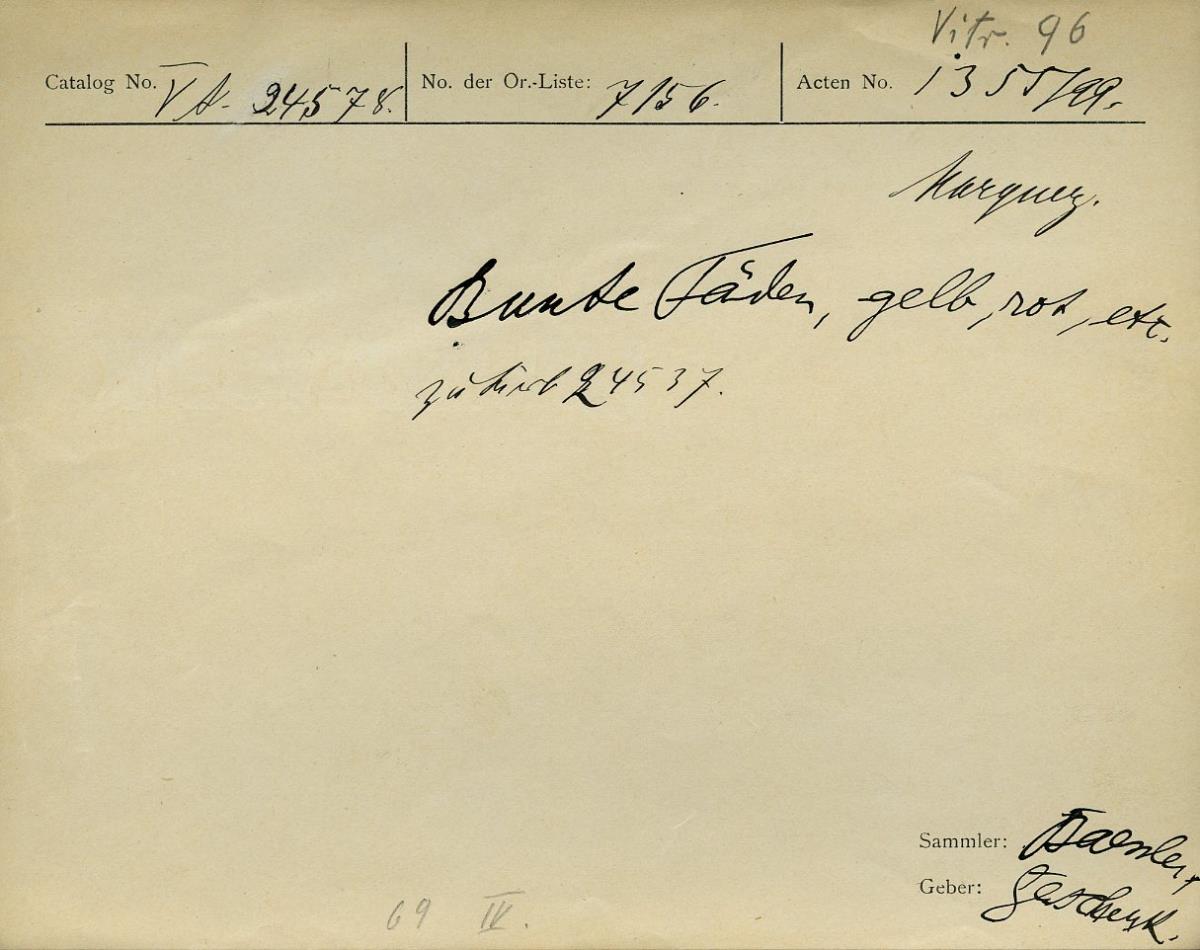 Vitr. 96
Catalog No. VA. 24578. No. der Or.-Liste: 7156. Acten No. 1355/99.
Marquez.
Bunte Fäden, gelb, rot, etc.
zu 24537.
Sammler: Baessler,
Geber: Geschenk.
69 IV.